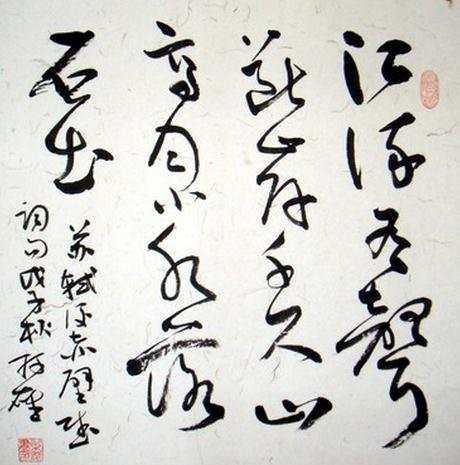 江流有聲
斷岸千尺山
高月小水落
石出
苏軾後赤壁賦
詞句戊子秋